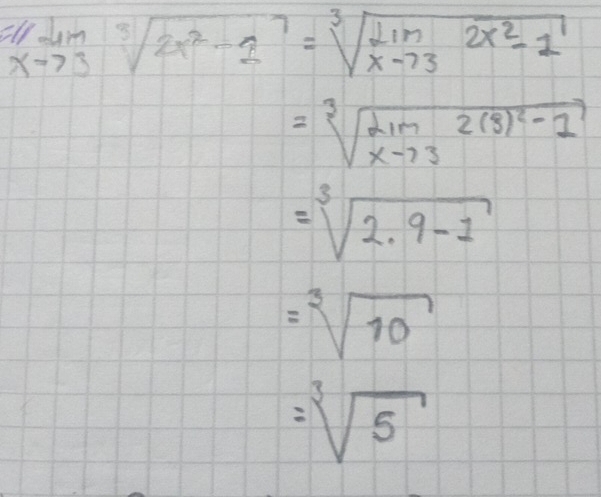 =// Lim x→3 ³√(2x² - 1) = ³√(Lim x→3 2x² - 1)
= ³√(Lim x→3 2(3)² - 1)
= ³√(2 . 9 - 1)
= ³√10
= ³√5